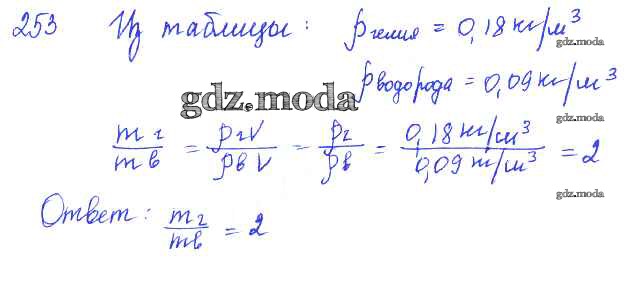 253 Из таблицы: ρгелия = 0,18 кг/м³
gdz.moda
ρводорода = 0,09 кг/м³
gdz.moda
gdz.moda
mг/mв = ρгV/ρвV = ρг/ρв = 0,18 кг/м³/0,09 кг/м³ = 2
gdz.moda
Ответ: mг/mв = 2
gdz.moda